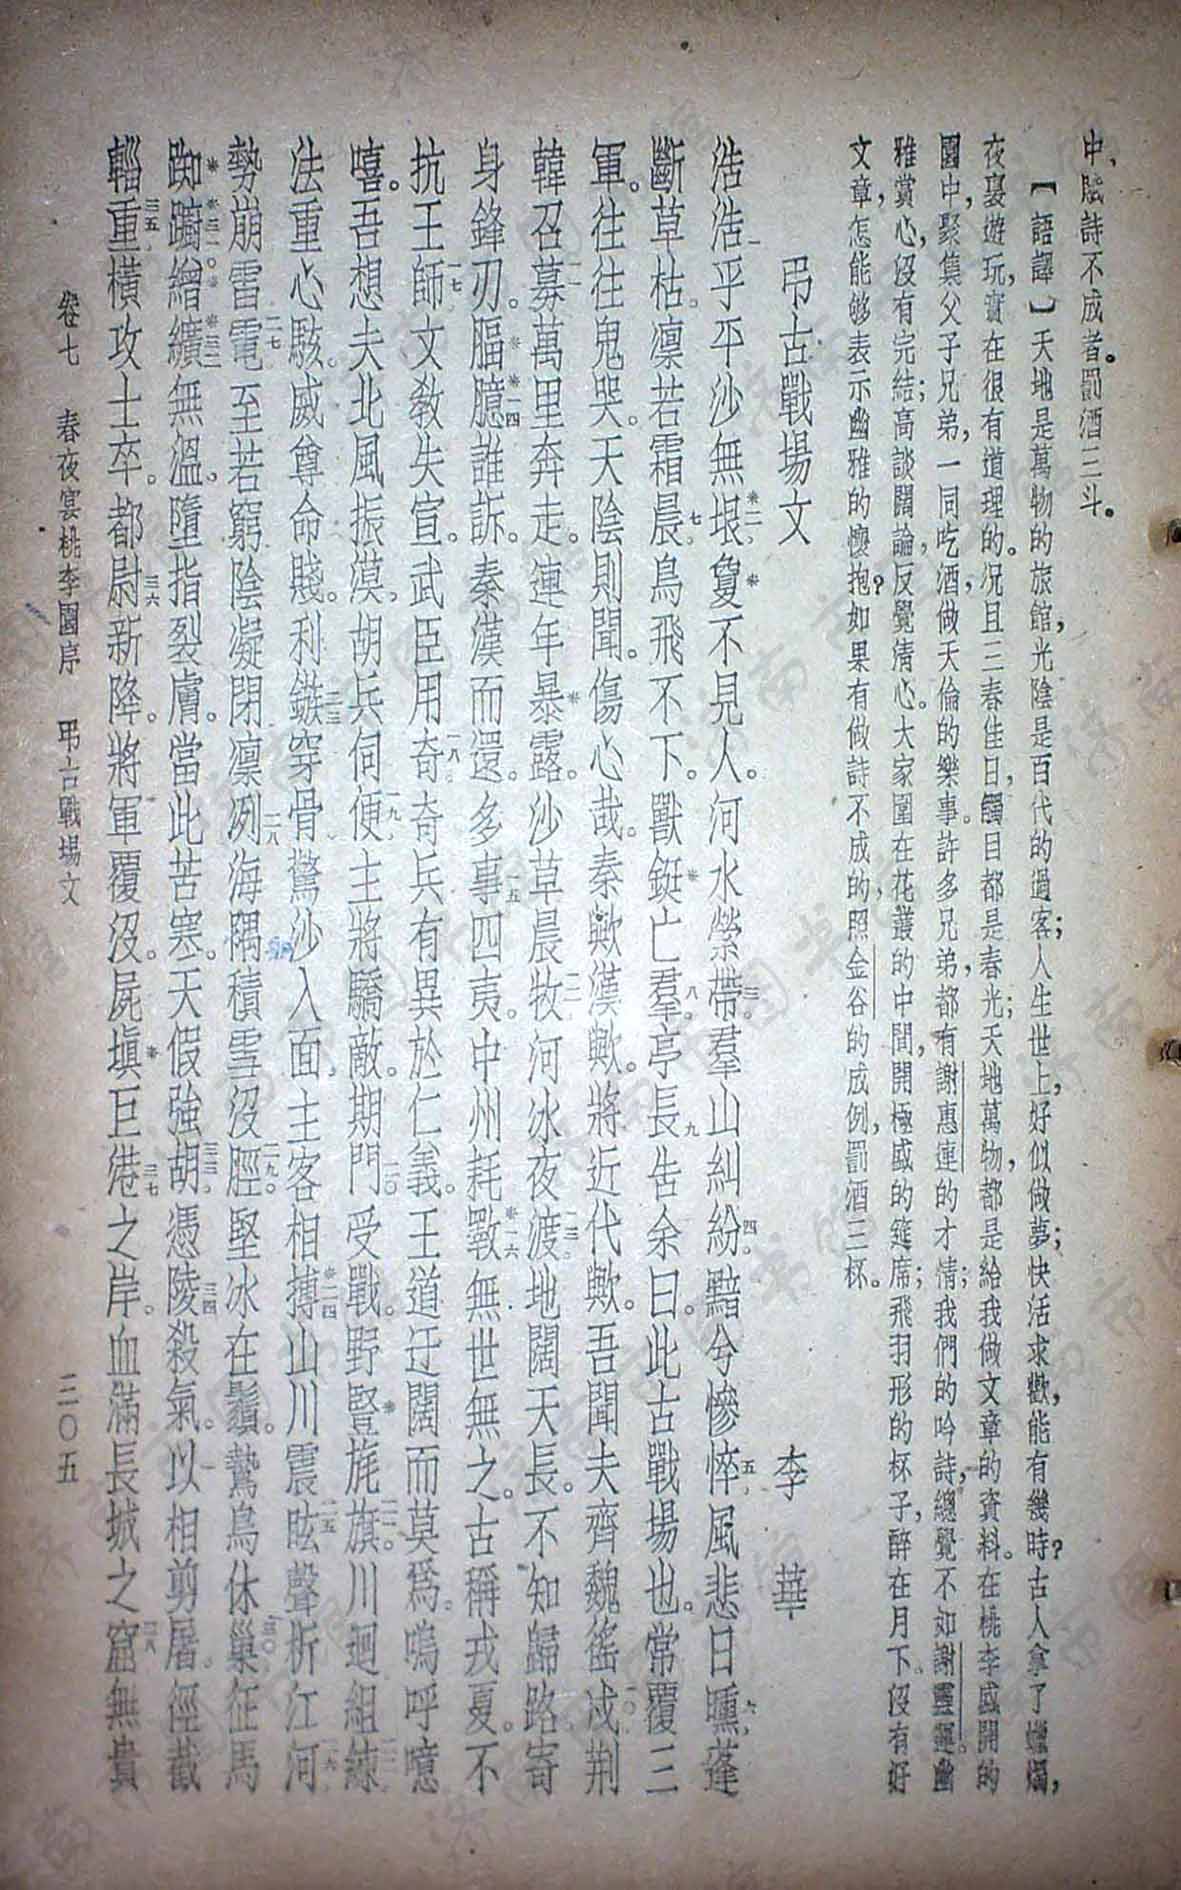 中、隂詩不成者。罰酒三斗。
【語譯】天地是萬物的旅館，光陰是百代的過客；人生世上，好似做夢；快活求歡，能有幾時？古人拿了蠟燭，
夜裏遊玩，實在很有道理的。况且三春佳日，觸目都是春光；天地萬物，都是給我做文章的資料。在桃李盛開的
園中，聚集父子兄弟，一同吃酒，做天倫的樂事。許多兄弟，都有謝惠連的才情；我們的吟詩，總覺不如謝靈運。幽
雅賞心，沒有完結；高談闊論，反覺清心。大家圍在花叢的中間，開極盛的筵席；飛羽形的杯子，醉在月下。沒有好
文章，怎能够表示幽雅的懷抱？如果有做詩不成的，照金谷的成例，罰酒三杯。
弔古戰場文 李華
浩浩一乎平沙無垠※二，敻※不見人。河水縈帶三。羣山糾紛四。黯兮慘悴五，風悲日曛六，蓬
斷草枯。凜若霜晨七，鳥飛不下。獸鋌※亡羣八。亭長九告余曰。此古戰場也。常覆三
軍。往往鬼哭。天陰則聞。傷心哉。秦歟漢歟。將近代歟。吾聞夫齊魏徭戍一〇，荆
韓召募一一，萬里奔走。連年暴※露。沙草晨牧一二，河冰夜渡一三。地闊天長。不知歸路，寄
身鋒刃。腷※臆※一四誰訴。秦漢而還。多事一五四夷。中州耗斁※一六，無世無之。古稱戎夏。不
抗王師一七，文敎失宣。武臣用奇一八。奇兵有異於仁義。王道迂闊而莫爲。嗚呼噫
嘻。吾想夫北風振漠。胡兵伺便一九，主將驕敵。期門二〇受戰。野豎※旄旗二一。川迴組練二二，
法重心駭。威尊命賤。利鏃二三穿骨，驚沙入面，主客相搏※二四，山川震眩二五，聲析江河二六，
勢崩雷電二七，至若窮陰凝閉，凜冽二八海隅，積雪沒脛二九。堅冰在鬚。鷙鳥休巢三〇。征馬
踟※躕※三一。繒※纊※三二無溫。墮指裂膚。當此苦寒。天假強胡三三。憑陵三四殺氣。以相剪屠。徑截
輜重三五，橫攻士卒。都尉三六新降。將軍覆沒。屍塡※巨港三七之岸。血滿長城之窟三八，無貴
卷七 春夜宴桃李園序 弔古戰場文 三〇五